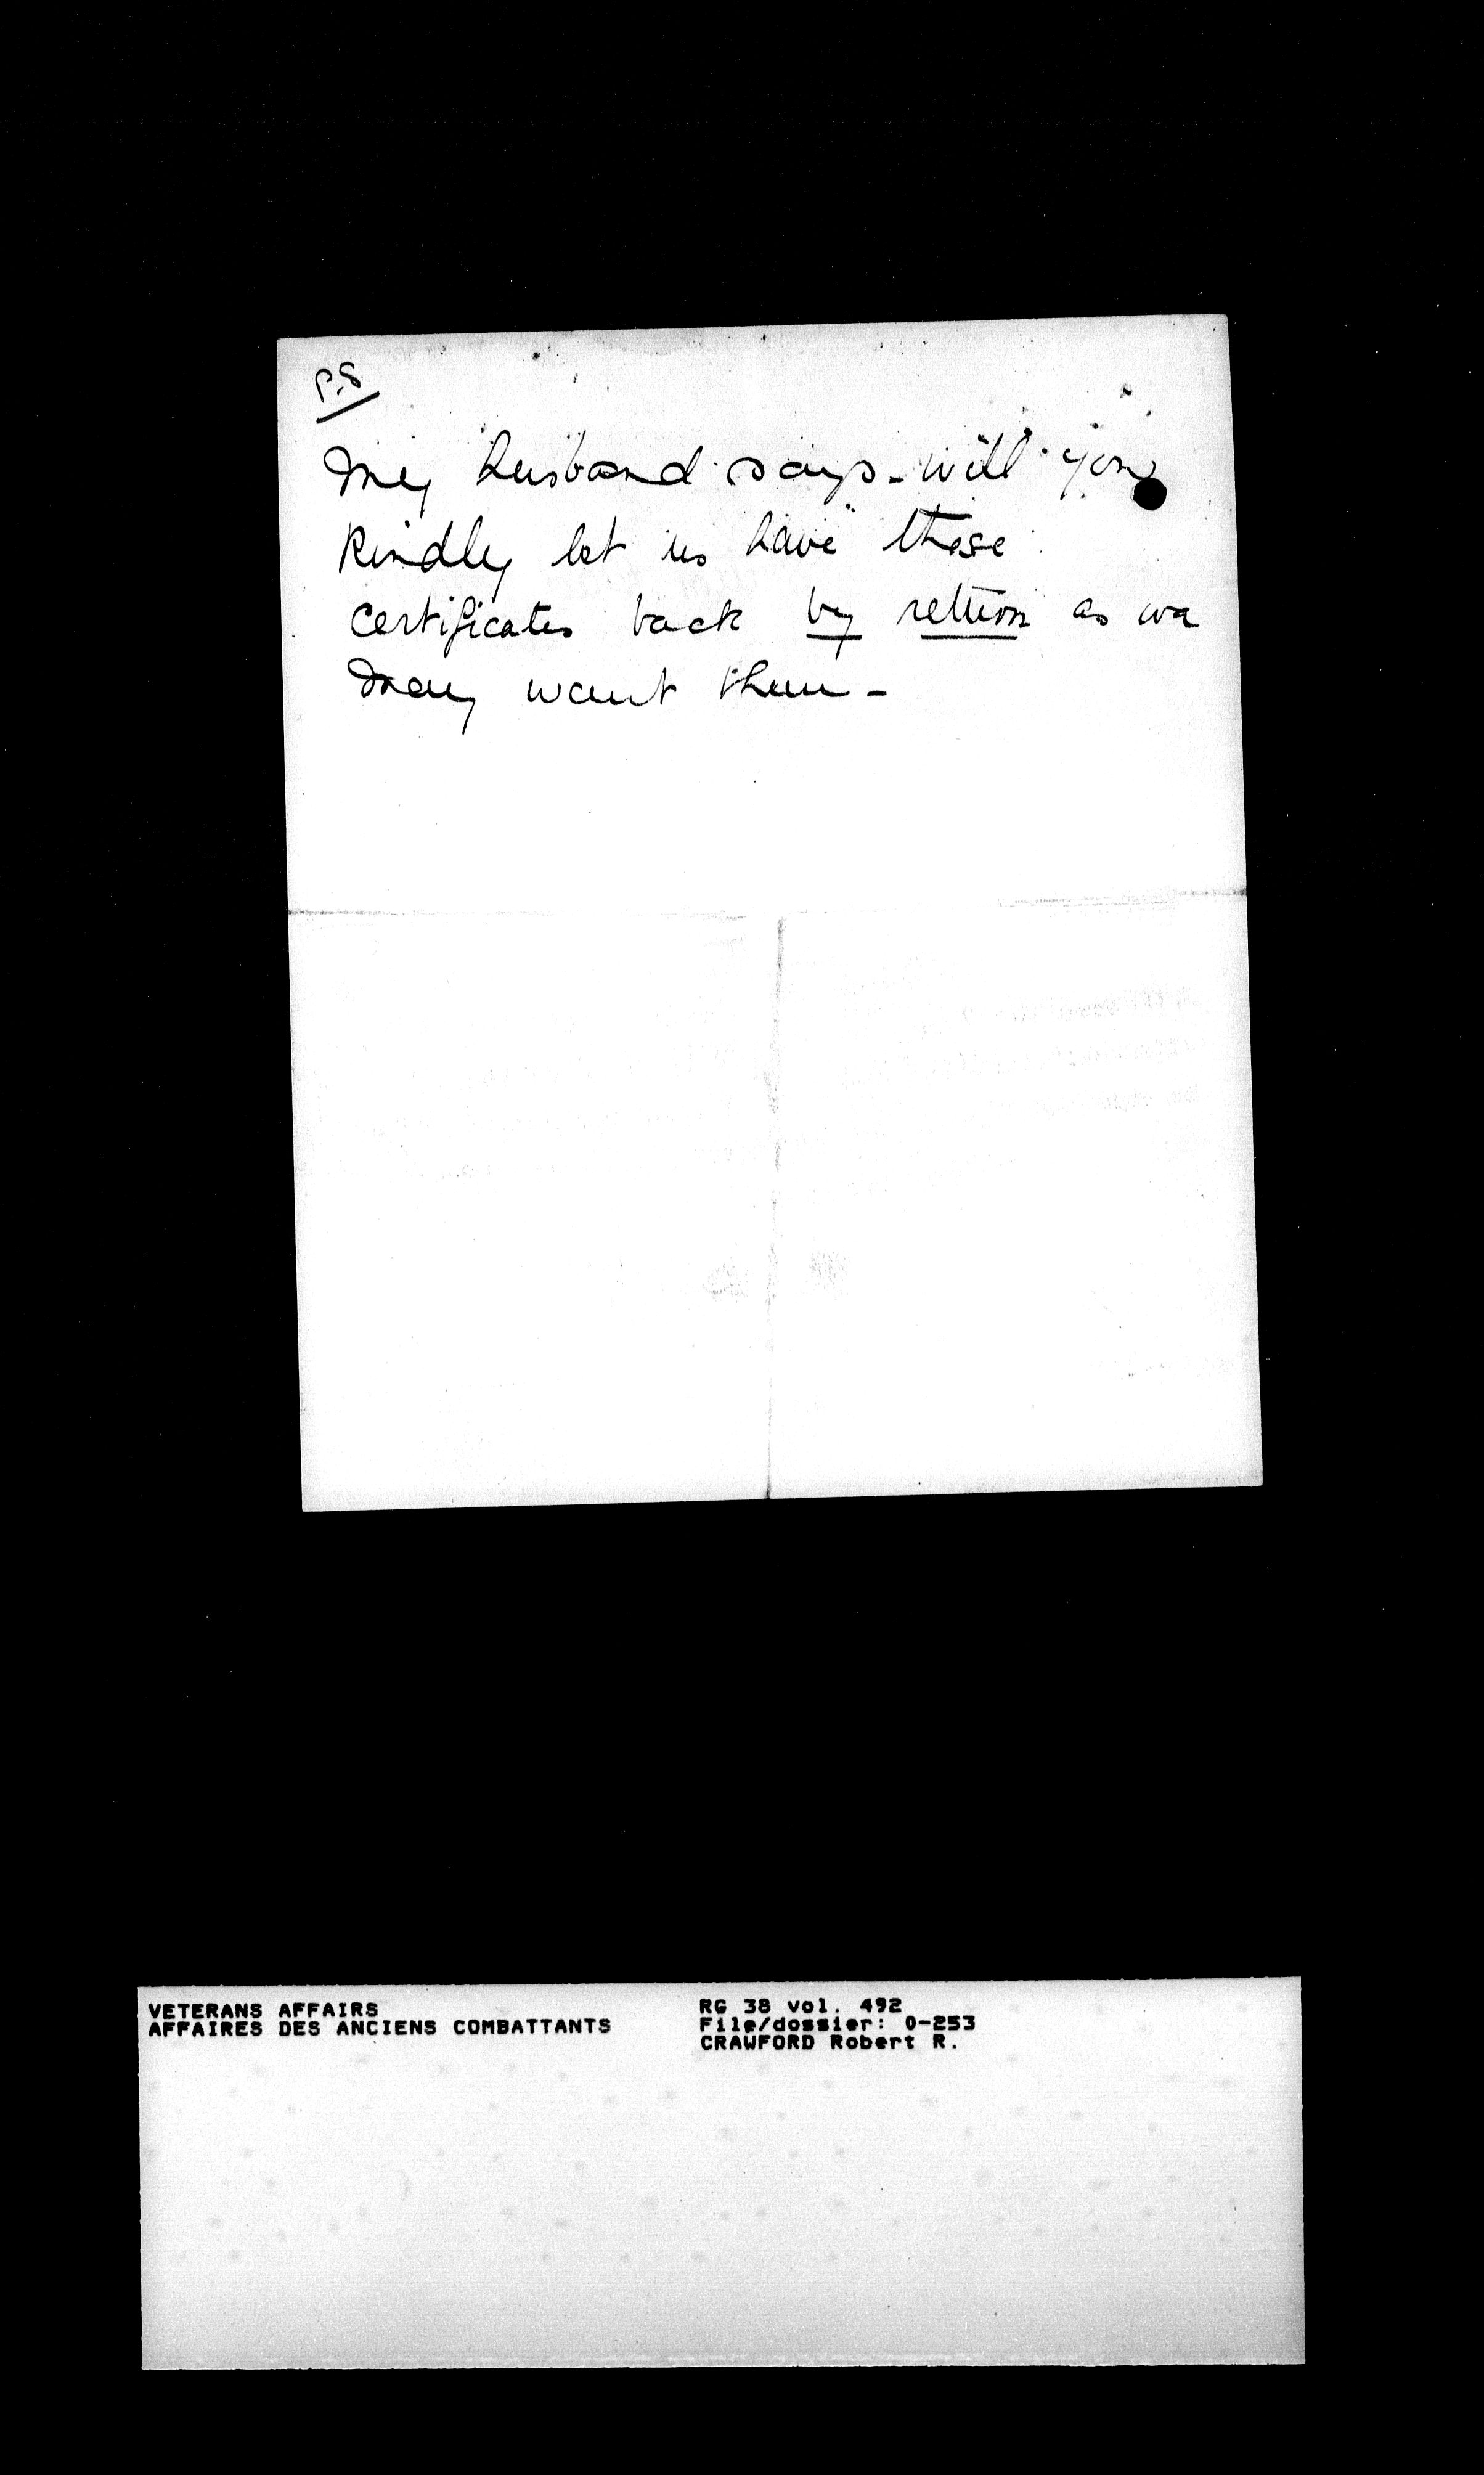 P.S
My husband says - will you
kindly let us have these
certificates back by return as we
may want them -
VETERANS AFFAIRS
AFFAIRES DES ANCIENS COMBATTANTS
RG 38 vol. 492
File/dossier: 0-253
CRAWFORD Robert R.